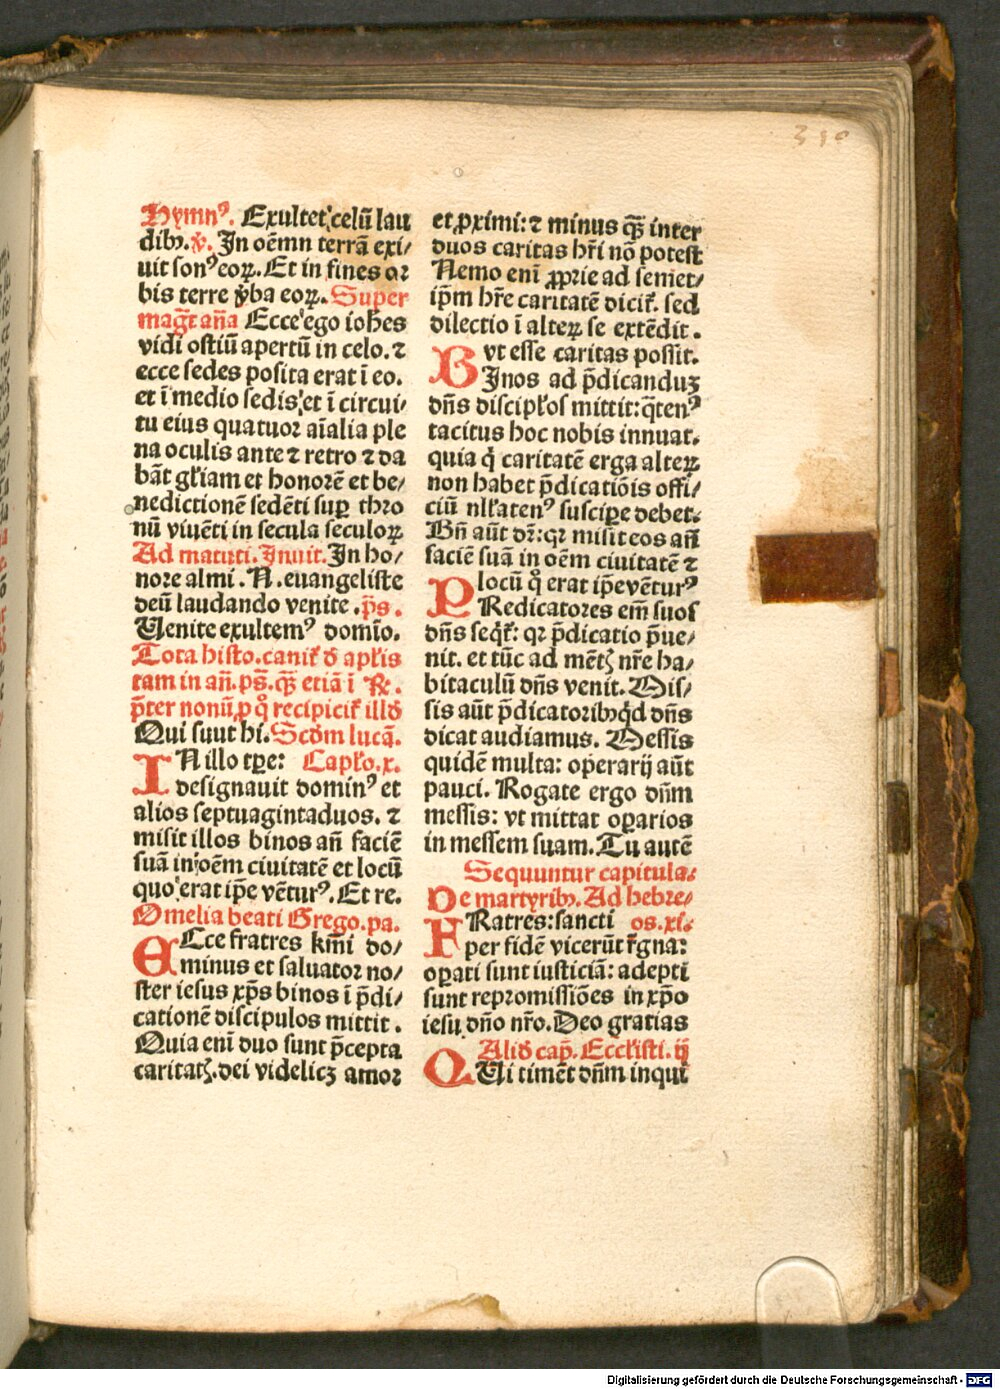 310
Hymnꝰ. Exultet celū lau
dibꝫ. ꝟ. In oēmn terrā exi⸗
uit sonꝰ eoꝝ. Et in fines or
bis terre ꝟba eoꝝ. Super
mag̅t an̄a Ecce ego iohēs
vidi ostiū apertū in celo. ⁊
ecce sedes posita erat ī eo.
et ī medio sedis et ī circui⸗
tu eius quatuor aīalia ple
na oculis ante ⁊ retro ⁊ da
bāt gl̓iam et honorē et be⸗
nedictionē sedēti suꝑ thro
nū viuēti in secula seculoꝝ
Ad matuti. Inuit. In ho⸗
nore almi . N. euangeliste
deū laudando venite . p̄s.
Uenite exultemꝰ domīo.
Tota histo. canit̓ d̓ apl̓is
tam in añ. ps̄. qꝫ̄ etiā ī ℟.
p̄ter nonū ꝓ qͦ recipicit̓ illd̓
Qui sunt hi. Scd̓m lucā.
IN illo tꝑe: Capl̓o. x.
designauit dominꝰ et
alios septuagintaduos. ⁊
misit illos binos añ faciē
suā in oēm ciuitatē et locū
quo erat ip̄e vētur̓ꝰ. Et re.
Omelia beati Grego. pa.
ECce fratres km̄i do⸗
minus et saluator no⸗
ster iesus xp̄s binos ī p̄di⸗
cationē discipulos mittit .
Quia enī duo sunt p̄cepta
caritatꝭ. dei videlicꝫ amor
et ꝓximi: ⁊ minus qꝫ̄ inter
duos caritas hr̄i nō potest
Nemo enī ꝓprie ad semet⸗
ip̄m hr̄e caritatē dicit̓. sed
dilectio ī alteꝝ se extēdit .
Bvt esse caritas possit.
Inos ad p̄dicanduꝫ
dn̄s discipl̓os mittit: q̄tenꝰ
tacitus hoc nobis innuat.
quia q̇ caritatē erga alteꝝ
non habet p̄dicatiōis offi⸗
ciū nll̓atenꝰ suscipe debet.
Bn̄ aūt dr̄: qꝛ misit eos añ
faciē suā in oēm ciuitatē ⁊
locū qͦ erat ip̄e vētur̓ꝰ
PRedicatores em̄ suos
dn̄s seqt̓: qꝛ p̄dicatio p̄ue⸗
nit. et tūc ad mētꝭ nr̄e ha⸗
bitaculū dn̄s venit. Mis⸗
sis aūt p̄dicatoribꝫ qd̓ dn̄s
dicat audiamus. Messis
quidē multa: operarij aūt
pauci. Rogate ergo dn̄m
messis: vt mittat oꝑarios
in messem suam. Tu autē
Sequuntur capitula⸗
De martyribꝫ. Ad hebre⸗
FRatres: sancti os. xi.
per fidē vicerūt r̓gna:
oꝑati sunt iusticiā: adepti
sunt repromissiōes in xp̄o
iesu dn̄o nr̄o. Deo gratias
Alid̓ cap̄. Eccl̓isti. ij
QUi timēt dn̄m inqui
Digitalisierung gefördert durch die Deutsche Forschungsgemeinschaft - DFG